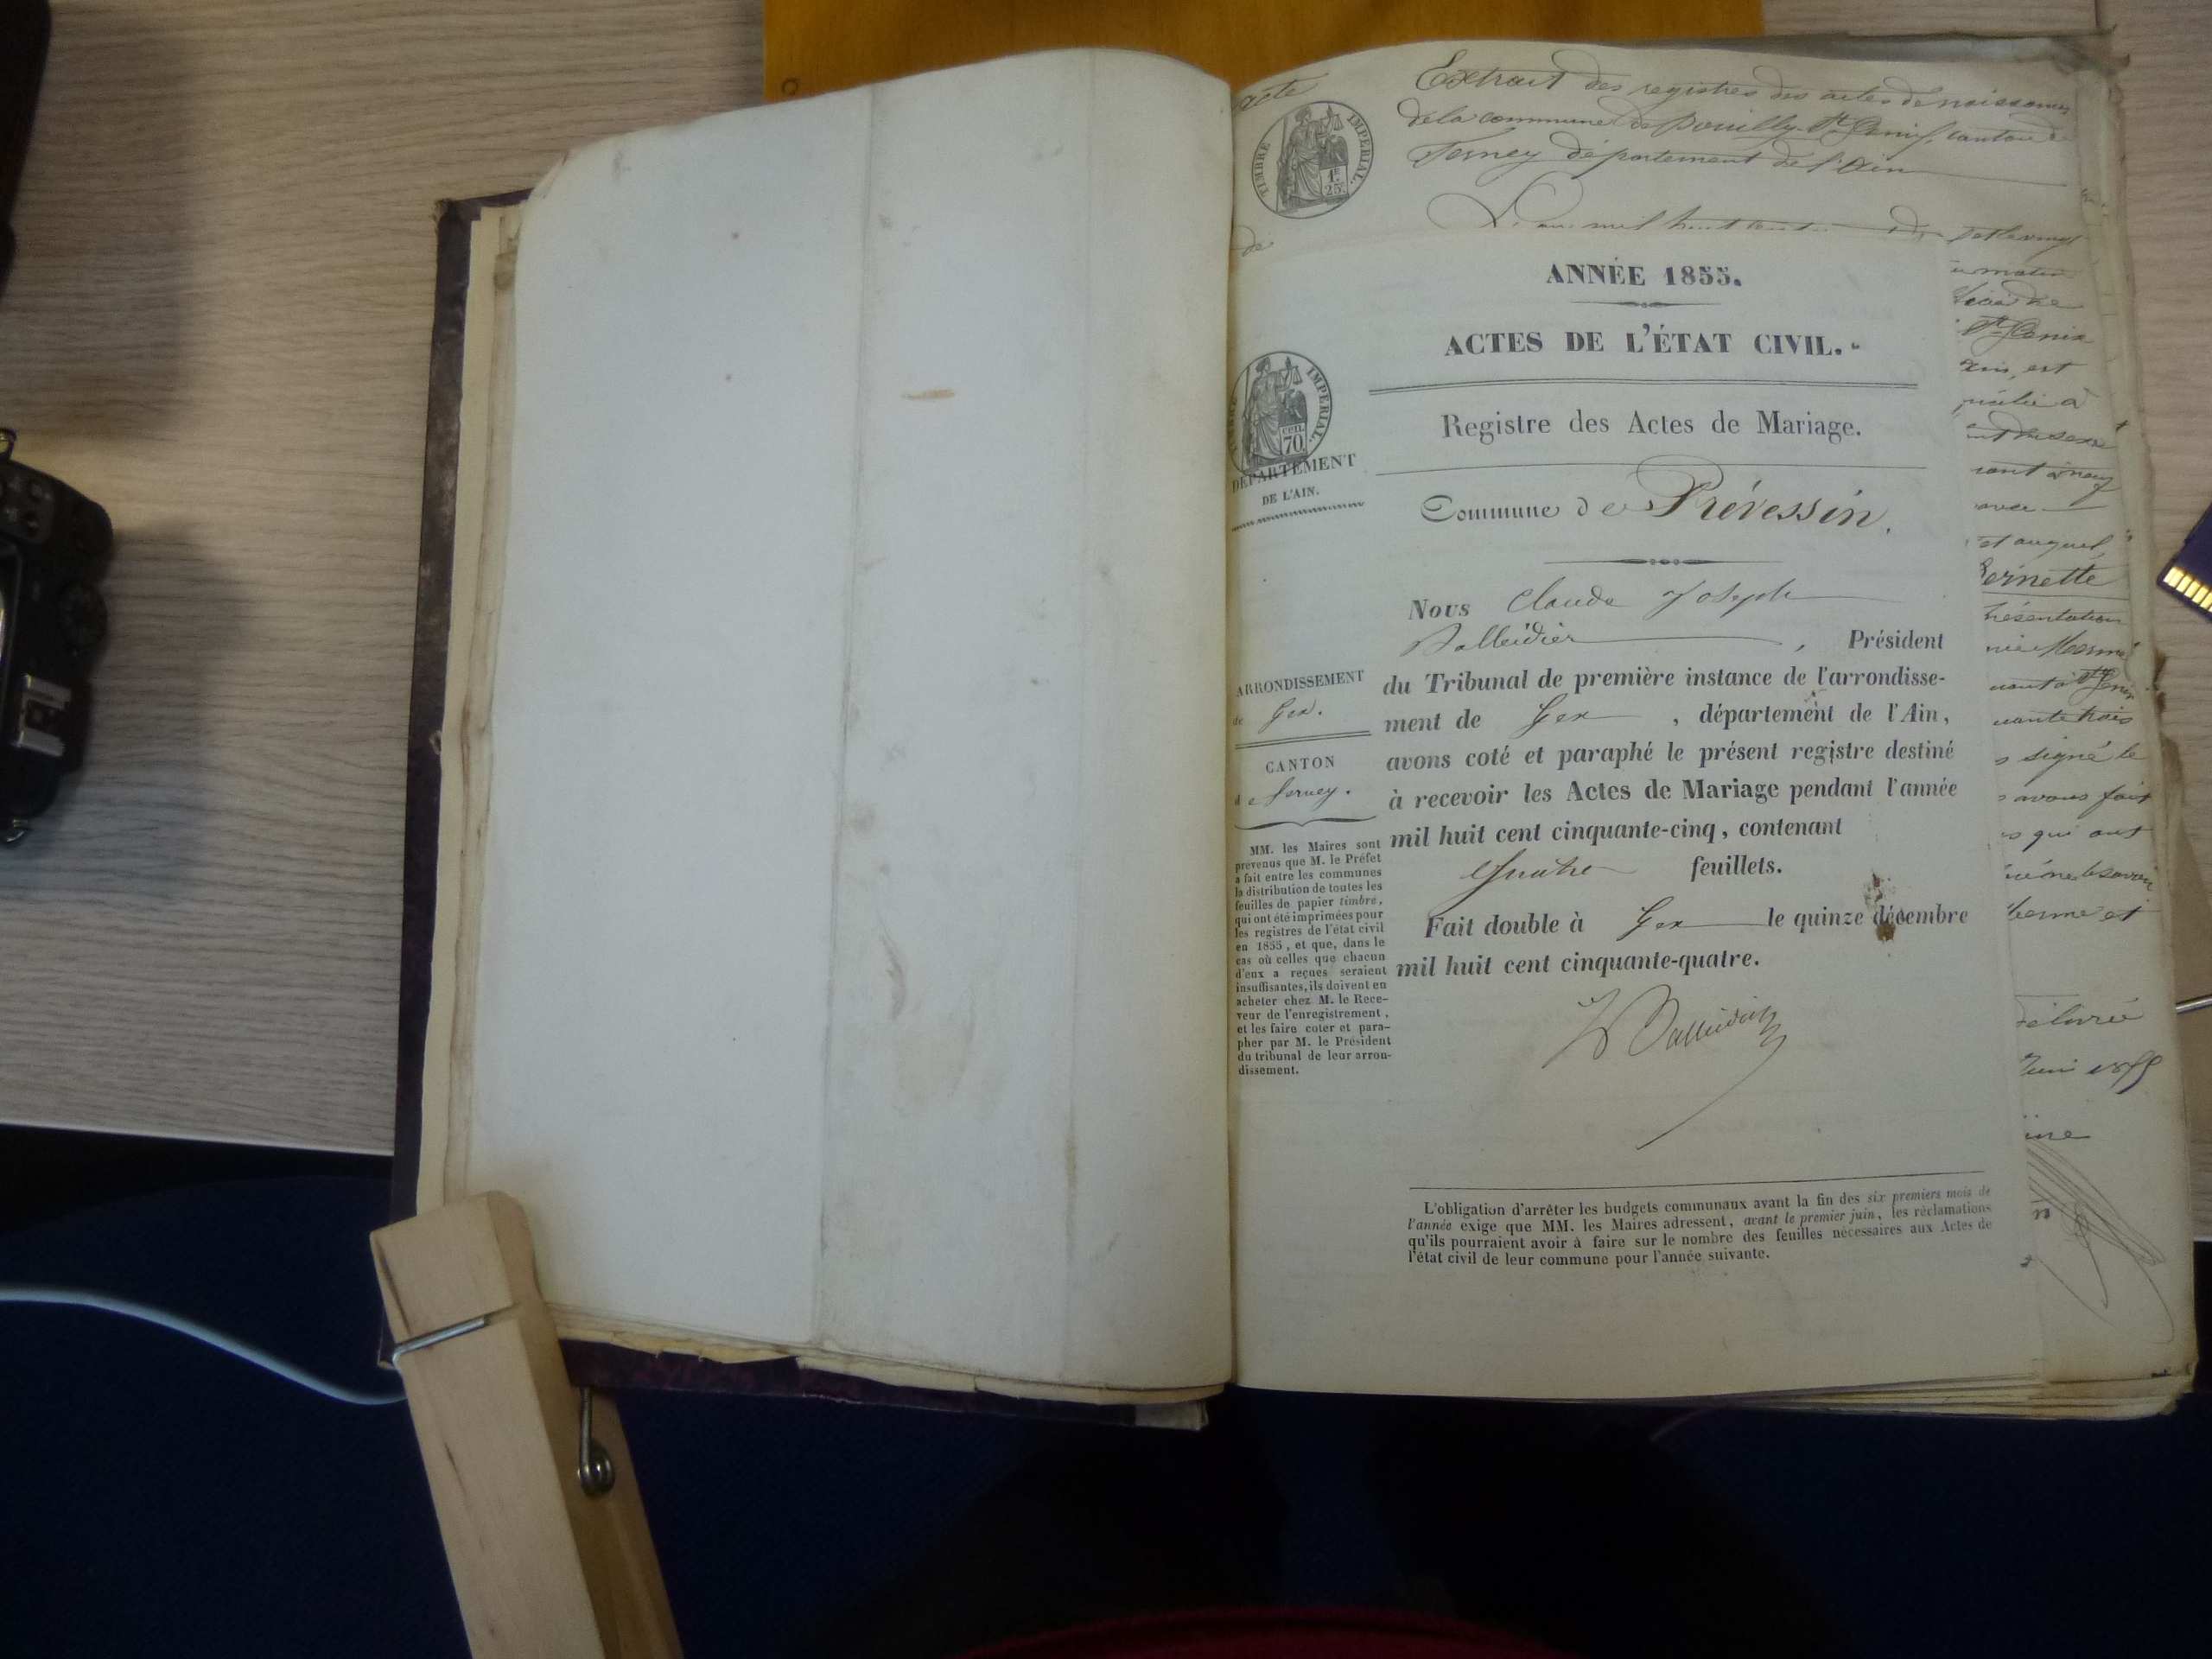 acte
Extrait des registres des actes de naissances
de la commune de Pouilly-St Genis, canton de
Ferney département de l'Ain
TIMBRE IMPÉRIAL.
1F. 25c.
L'an mil huit cent
de
ANNÉE 1855.
ACTES DE L'ÉTAT CIVIL.
Registre des Actes de Mariage.
IMPÉRIAL.
cen. 70
DÉPARTEMENT
DE L'AIN.
Commune de Prévessin.
Nous Claude Joseph
Balleidier, Président
du Tribunal de première instance de l'arrondisse-
ment de Gex, département de l'Ain,
avons coté et paraphé le présent registre destiné
à recevoir les Actes de Mariage pendant l'année
mil huit cent cinquante-cinq, contenant
Quatre feuillets.
Fait double à Gex le quinze décembre
mil huit cent cinquante-quatre.
ARRONDISSEMENT
de Gex.
CANTON
de Ferney.
MM. les Maires sont
prévenus que M. le Préfet
a fait entre les communes
la distribution de toutes les
feuilles de papier timbre,
qui ont été imprimées pour
les registres de l'état civil
en 1855, et que, dans le
cas où celles que chacun
d'eux a reçues seraient
insuffisantes, ils doivent en
acheter chez M. le Rece-
veur de l'enregistrement,
et les faire coter et para-
pher par M. le Président
du tribunal de leur arron-
dissement.
Balleidier
L'obligation d'arrêter les budgets communaux avant la fin des six premiers mois de
l'année exige que MM. les Maires adressent, avant le premier juin, les réclamations
qu'ils pourraient avoir à faire sur le nombre des feuilles nécessaires aux Actes de
l'état civil de leur commune pour l'année suivante.
matin
St Genix
est
à
avec
et auquel
ernette
résentation
trois
signé le
avons fait
qui ont
et
délivré
Juin 1855